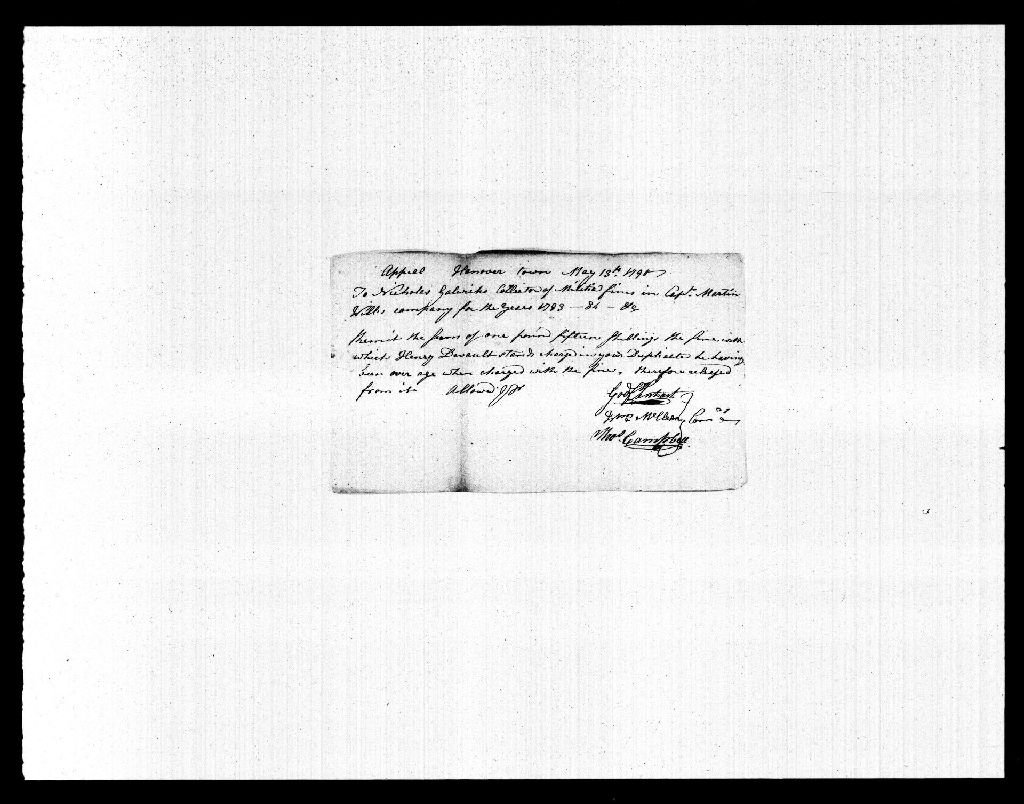 Appeal Hanover town May 13th 1790
To Nicholas Collector of Militia fines in Capt. Martin
Wills company for the Years 1783 – 84 – 85
Remit the sum of one pound fifteen shillings the fine with
which Henry Devault stands charged in your Duplicate he having
been over age when charged with the fine, therefore released
from it Allowed
Wm McClean Comrs
Thos Campbell